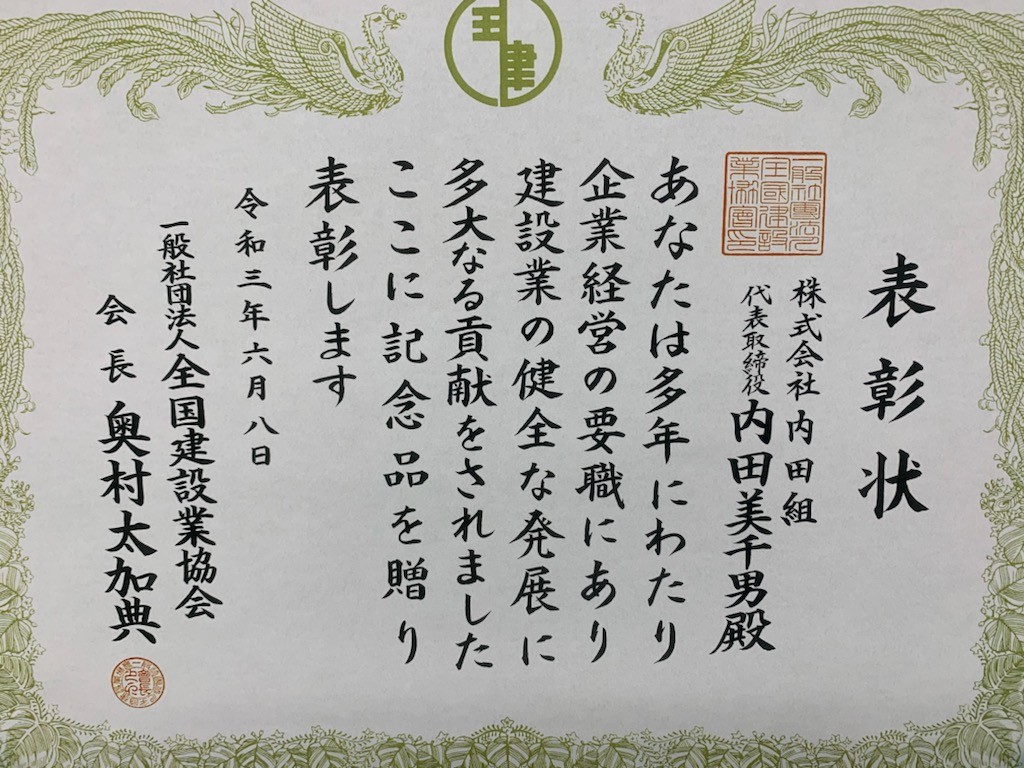 表彰状
株式会社内田組
代表取締役 内田美千男殿
あなたは多年にわたり
企業経営の要職にあり
建設業の健全な発展に
多大なる貢献をされました
ここに記念品を贈り
表彰します
令和三年六月八日
一般社団法人全国建設業協会
会長 奥村太加典